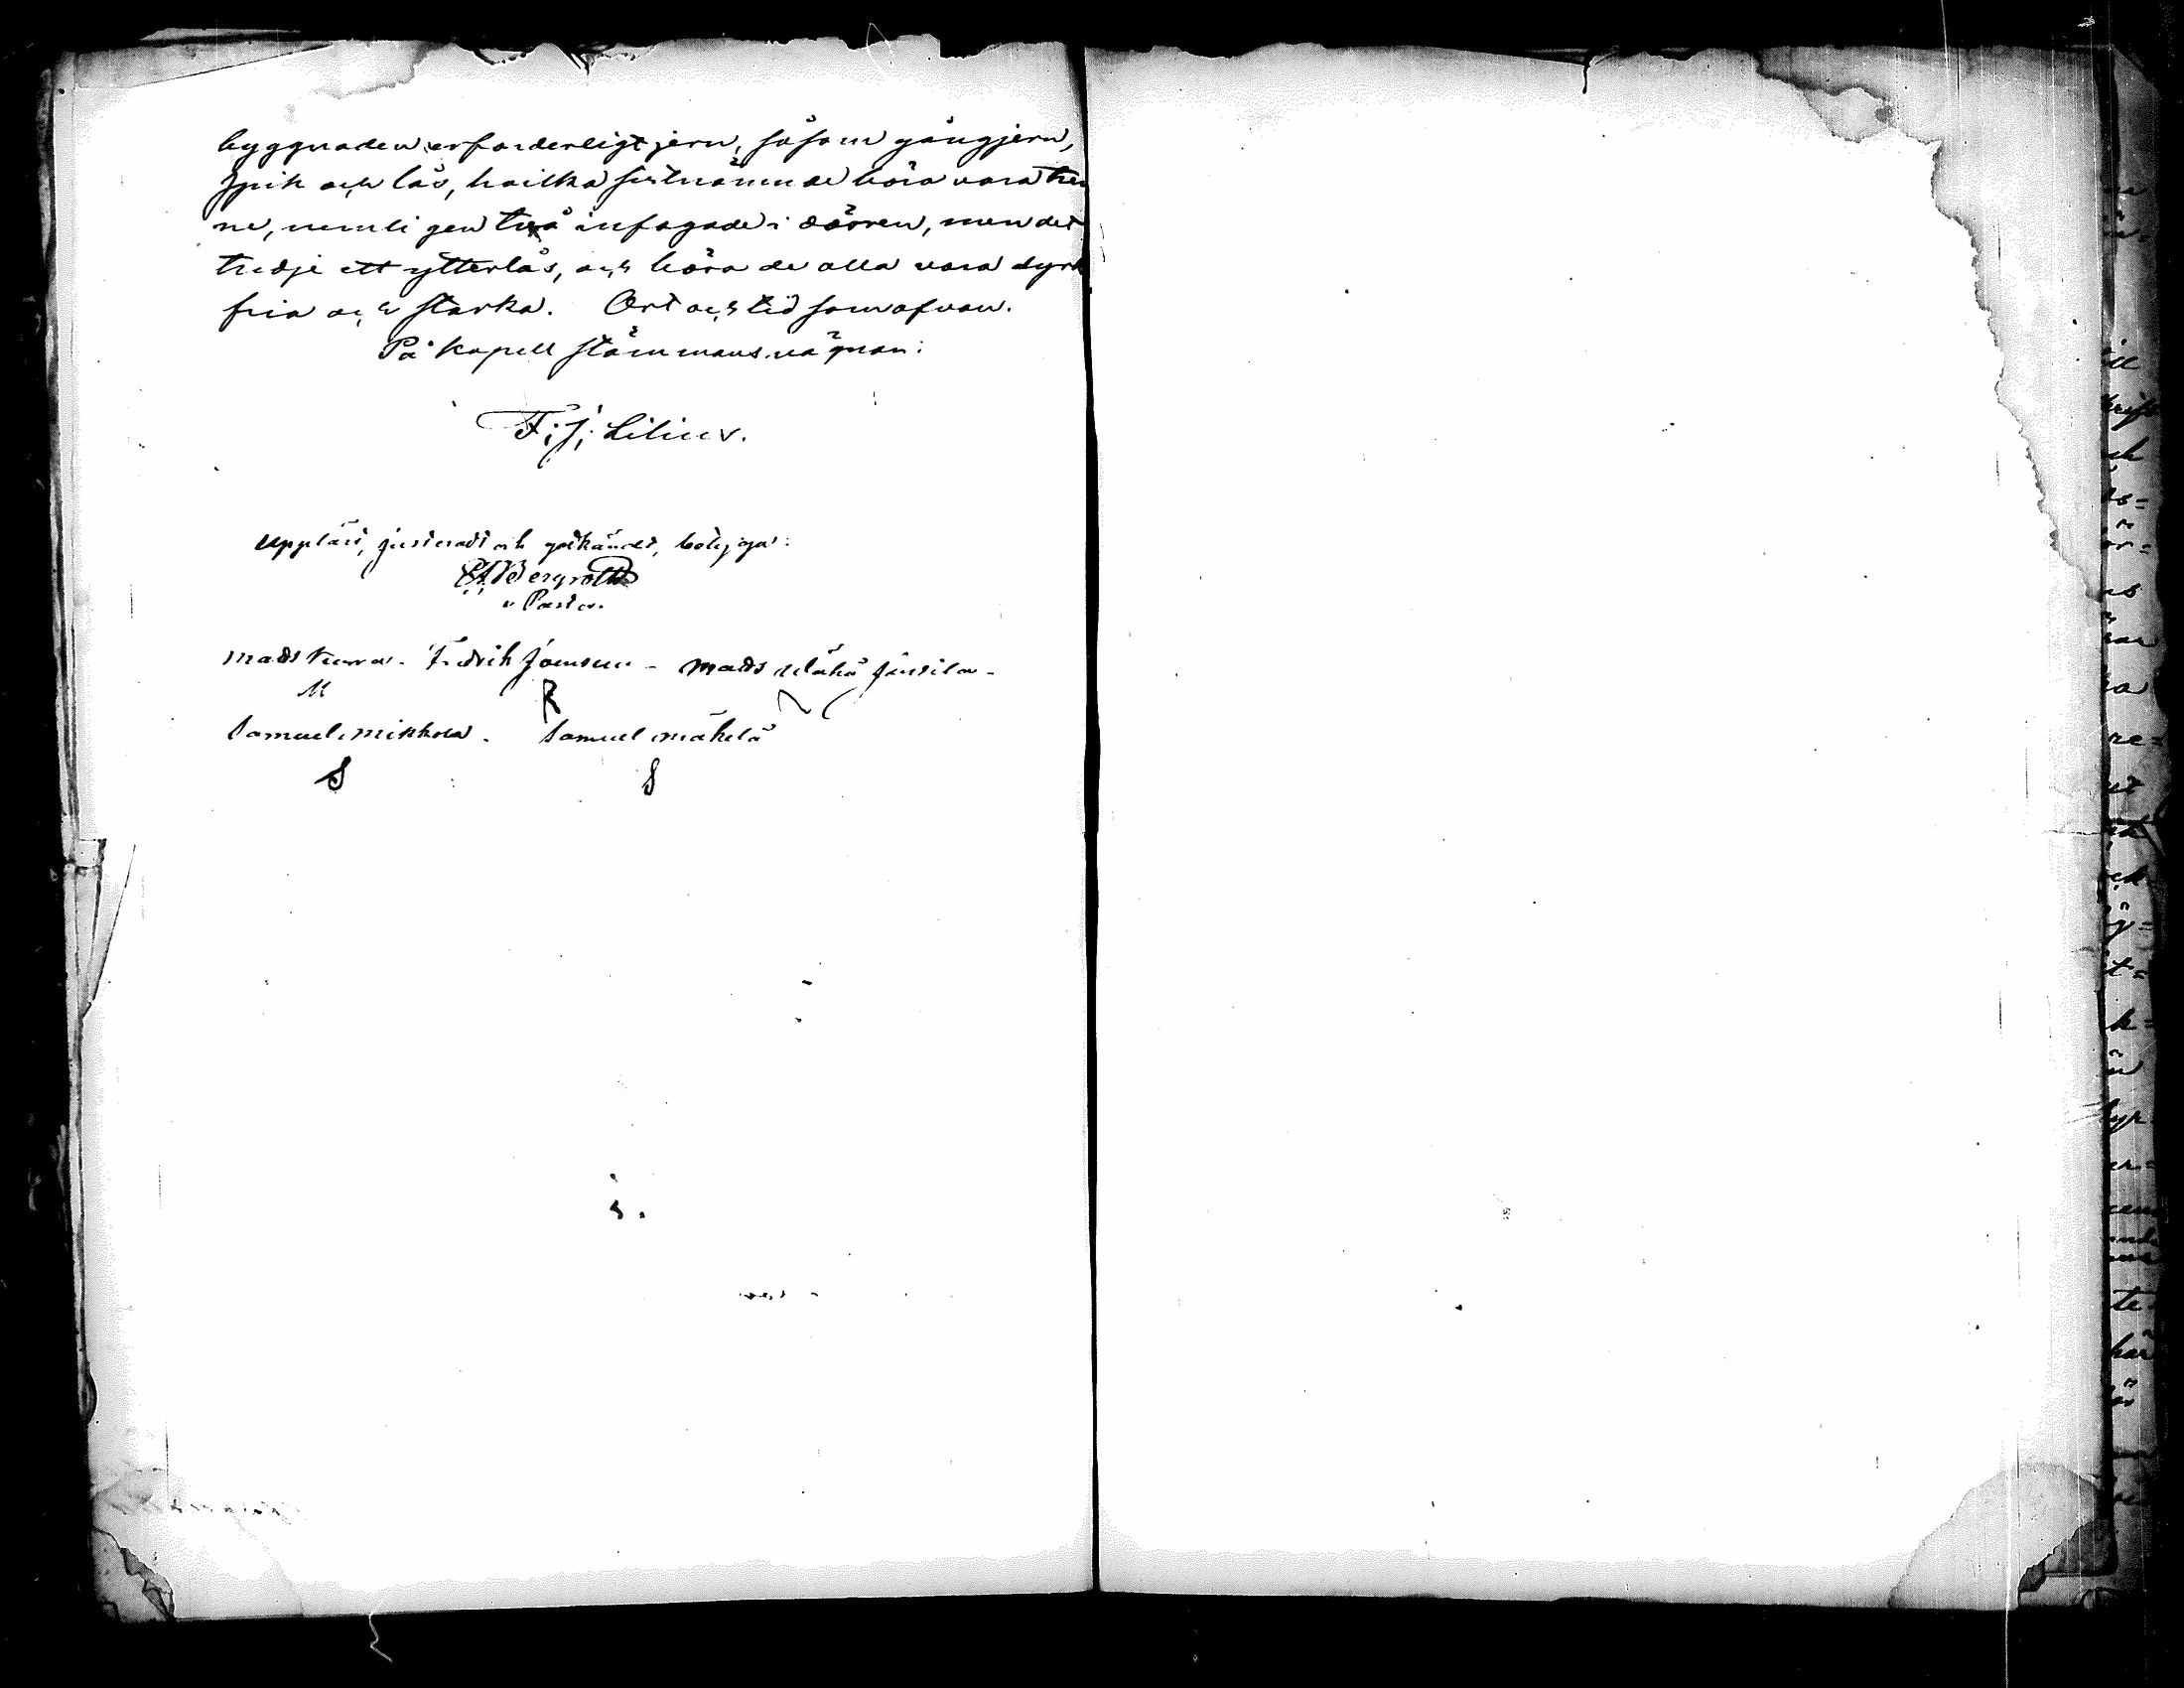 byggnaden erforderligt jern, såsom gångjern,
spik och lås, hvilka sistnämnde böra vara tre
ne, nemligen två infogade i dörren, men det
tredje ett ytterlås, och böra de alla vara dyrk
fria och starka. Ort och tid som ofvan.
På kapellstämmans vägnar:
F. J. Lilius.
Uppläst, justeradt och godkändt, betyga:
Bergroth
v. Pastor.
Mads - Fredrik Jounsuu - Mads Jussila -
M R
Samuel Mikkola. Samuel Mäkelä
S S